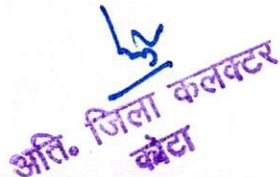 अति. जिला कलक्टर
क्वेटा